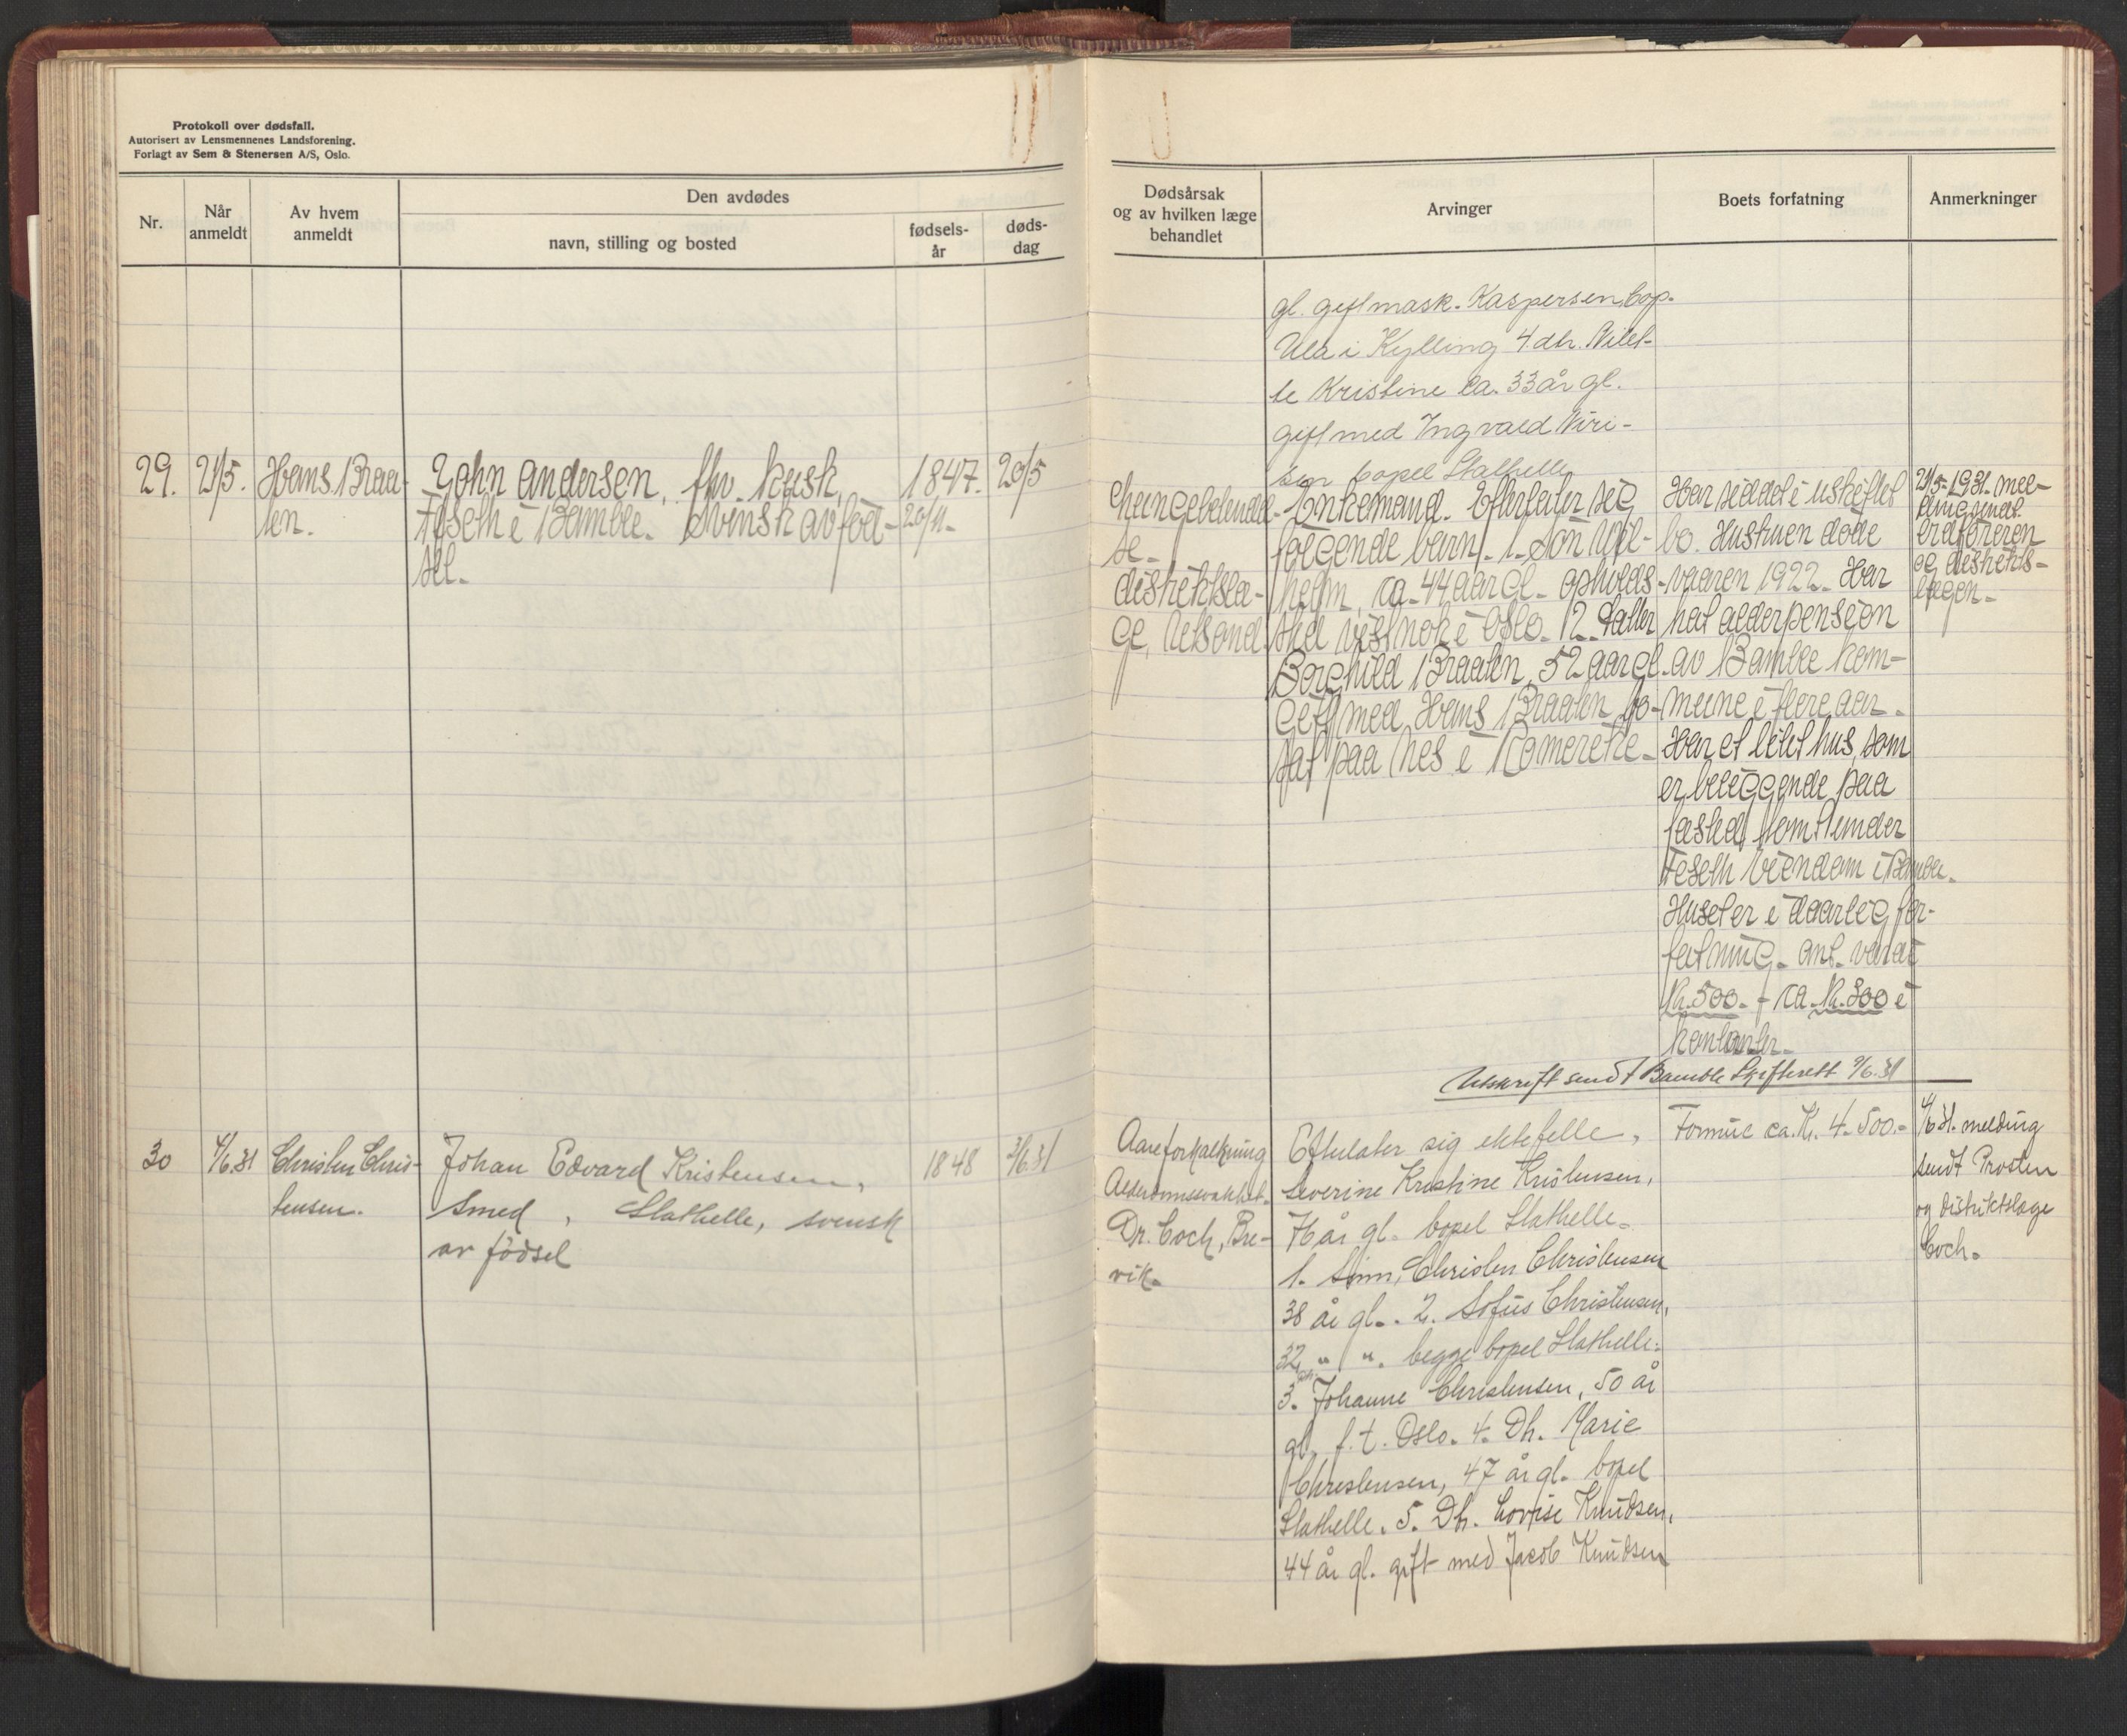 Protokoll over dødsfall.
Autorisert av Lensmennenes Landsforening.
Forlagt av Sem & Stenersen A/S, Oslo.
Nr.
Når
anmeldt
Av hvem
anmeldt
Den avdødes
navn, stilling og bosted
fødsels-
år
døds-
dag
29.
21/5.
Hans Braa-
ten.
John Andersen, fhv. kusk,
Feseth i Bamble. Svensk av fød-
sel.
1847.
20/11-
20/5
30
4/6.31
Christen Chris-
tensen.
Johan Edvard Kristensen,
Smed, Stathelle, svensk
av fødsel
1848
3/6.31
Dødsårsak
og av hvilken læge
behandlet
Arvinger
Boets forfatning
Anmerkninger
gl. gift mask. Kaspersen, bop.
Ula i Kylling 4. dtr.
te Kristine ca. 33 år gl.
gift med Ingvald
sen bopel Stathelle
Lungebetendel-
se.
distriktslæ-
ge,
Enkemand. Efterlater sig
følgende barn. 1. Søn Wil-
helm, ca. 44 aar gl. opholds-
sted vistnok i Oslo. 2. Datter
Borghild Braaten, 52 aar gl.
gift med Hans Braaten, bo-
sat paa Nes i Romerike.
Har siddet i uskiftet
bo. Hustruen døde
vaaren 1922. Har
hat alderpension
av Bamble kom-
mune i flere aar.
Har et litet hus, som
er beliggende paa
fæstet tomt under
Feseth eiendom i Bamble.
Huset er i daarlig for-
fatning. Ant. værdi
Kr. 500. + ca. Kr. 300 i
kontanter.
21/5-1931. mel-
ding sendt
ordføreren
og distrikts-
lægen.
Utskrift sendt Bamble Skifterett 9/6.31
Aareforkalkning
Alderdomssvakhet.
Dr. Coch, Bre-
vik.
Efterlater sig ektefelle,
Severine Kristine Kristensen,
76 år gl. bopel Stathelle.
1. Sønn, Christen Christensen
38 år gl.. 2. Sofus Christensen,
32 " ". begge bopel Stathelle.
3. Johanne Christensen, 50 år
gl. f. t. Oslo. 4. Dt. Marie
Christensen, 47 år gl. bopel
Stathelle. 5. Dt. Lovise Knudsen,
44 år gl. gift med Jacob Knudsen
Formue ca. Kr. 4.500.-
4/6 31. melding
sendt Prosten
og distriktslæge
Coch.